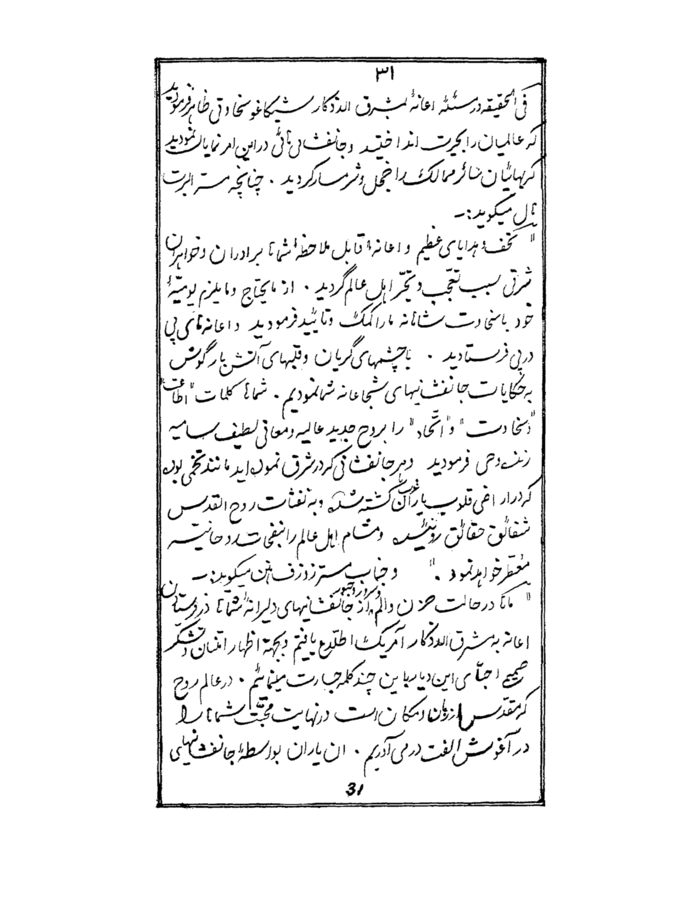 ۳۱
فی الحقیقه در مسئله اعانهٔ مشرق الاذکار شیکاغو سخاوتی ظاهر فرمودید
که عالمیان را بحیرت انداختید و جانفشانی‌ئی در این امر نمایان نمودید
که بهائیان سائر ممالک را خجل و شرمسار کردید . چنانچه مستر البرت
هال میگوید:-
" تحف و هدایای عظیم و اعانهٔ قابل ملاحظهٔ شما برادران و خواهران
شرقی سبب تعجب و تحیّر اهل عالم گردید . از مایحتاج و مایلزم یومیهٔ
خود باسخاوت شاهانه ما را کمک و تأیید فرمودید و اعانه‌های پی
در پی فرستادید . با چشمهای گریان و قلبهای آتش بار گوش
به حکایات جانفشانیهای شجاعانه شما نمودیم . شما کلمات "اطاعت"
"و سخاوت" و "اتّحاد" را بروح جدید عالیه و معانی لطیف سامیه
زنده و حی فرمودید و هر جانفشانی که در شرق نموده‌اید مانند تخمی بوده
که در اراضی قلوب یاران غرب کشته شده و به نفثات روح القدس
شقائق حقائق روئیده و مشام اهل عالم را بنفحات روحانیه
معطّر خواهد نمود . " و جناب مستر زوزف هنن میگوید:-
" ما که در حالت حزن و الم از جانفشانیهای دلیرانهٔ شما در فرستادن
و سرور و حبور
اعانه به مشرق الاذکار آمریک اطلاع یافتیم و بجهة اظهار امتنان و تشکر
صمیمی احبّای این دیار باین چند کلمه جسارت مینمائیم . در عالم روح
که مقدّس از زمان و مکان است در نهایت محبّت شما را
در آغوش الفت در می‌آوریم . ان یاران بواسطهٔ جانفشانیهای
31